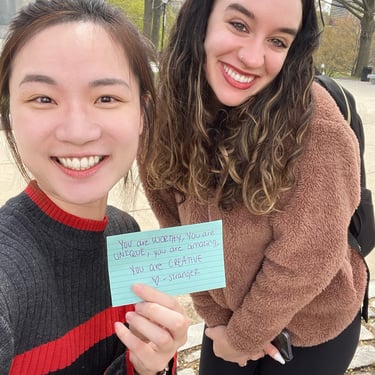 You are WORTHY, You are
UNIQUE, you are amazing,
You are CREATIVE
♡ -stranger